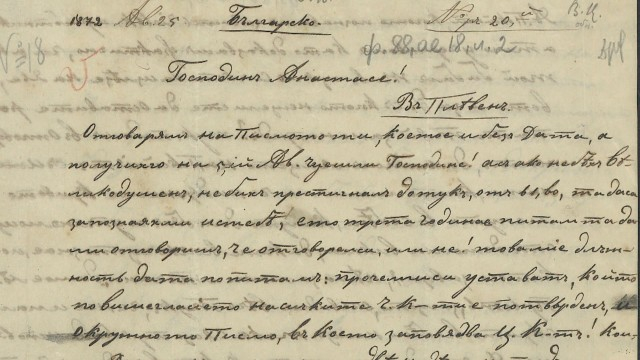 1872 Ав 25 Българско. Нѫр 20,
В. Ц.
ф. 88, ае 18, л. 2
Господинъ Анастасе!
Въ Плѣвенъ.
Отговарямъ на Писмото ти, което е и безъ Дата, а
получихго на Ав. чуешли Господине! азъ ако небѣхъ ве-
ликодушенъ, небихъ престигналъ дотукъ, отъ въ, во, та даса
запознаяхми истебѣ, ето трета година е питамъ та да
ми отговоришъ, че отговорелси, или не! това ми е длъж-
ность дата попитамъ: прочемиси уставатъ, който
по вишегласието насичките ч. К-тие потвърденъ, и
окружното Писмо, въ което заповядва Ц. К-тъ!